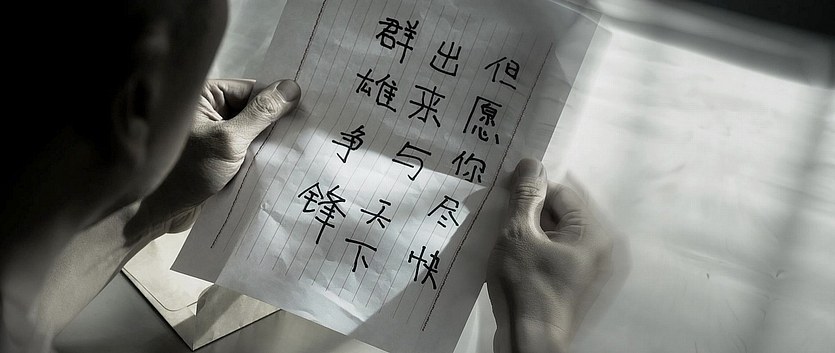 但愿你尽快
出来与天下
群雄争锋